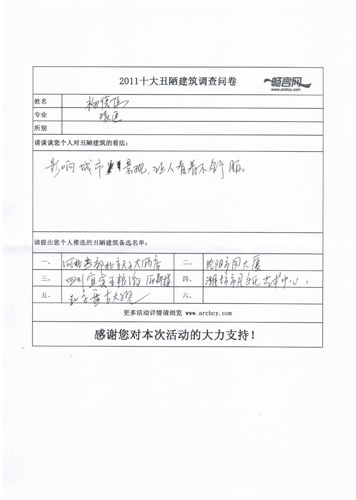 2011十大丑陋建筑调查问卷
畅言网
www.archcy.com
姓名
专业
所别
请谈谈您个人对丑陋建筑的看法:
影响城市景观,让人看着不舒服。
请提出您个人推选的丑陋建筑备选名单:
一、河北燕郊北京天子大酒店 二、沈阳方圆大厦
三、四川宜宾五粮液 四、
五、 六、
更多活动详情请浏览 www.archcy.com
感谢您对本次活动的大力支持!